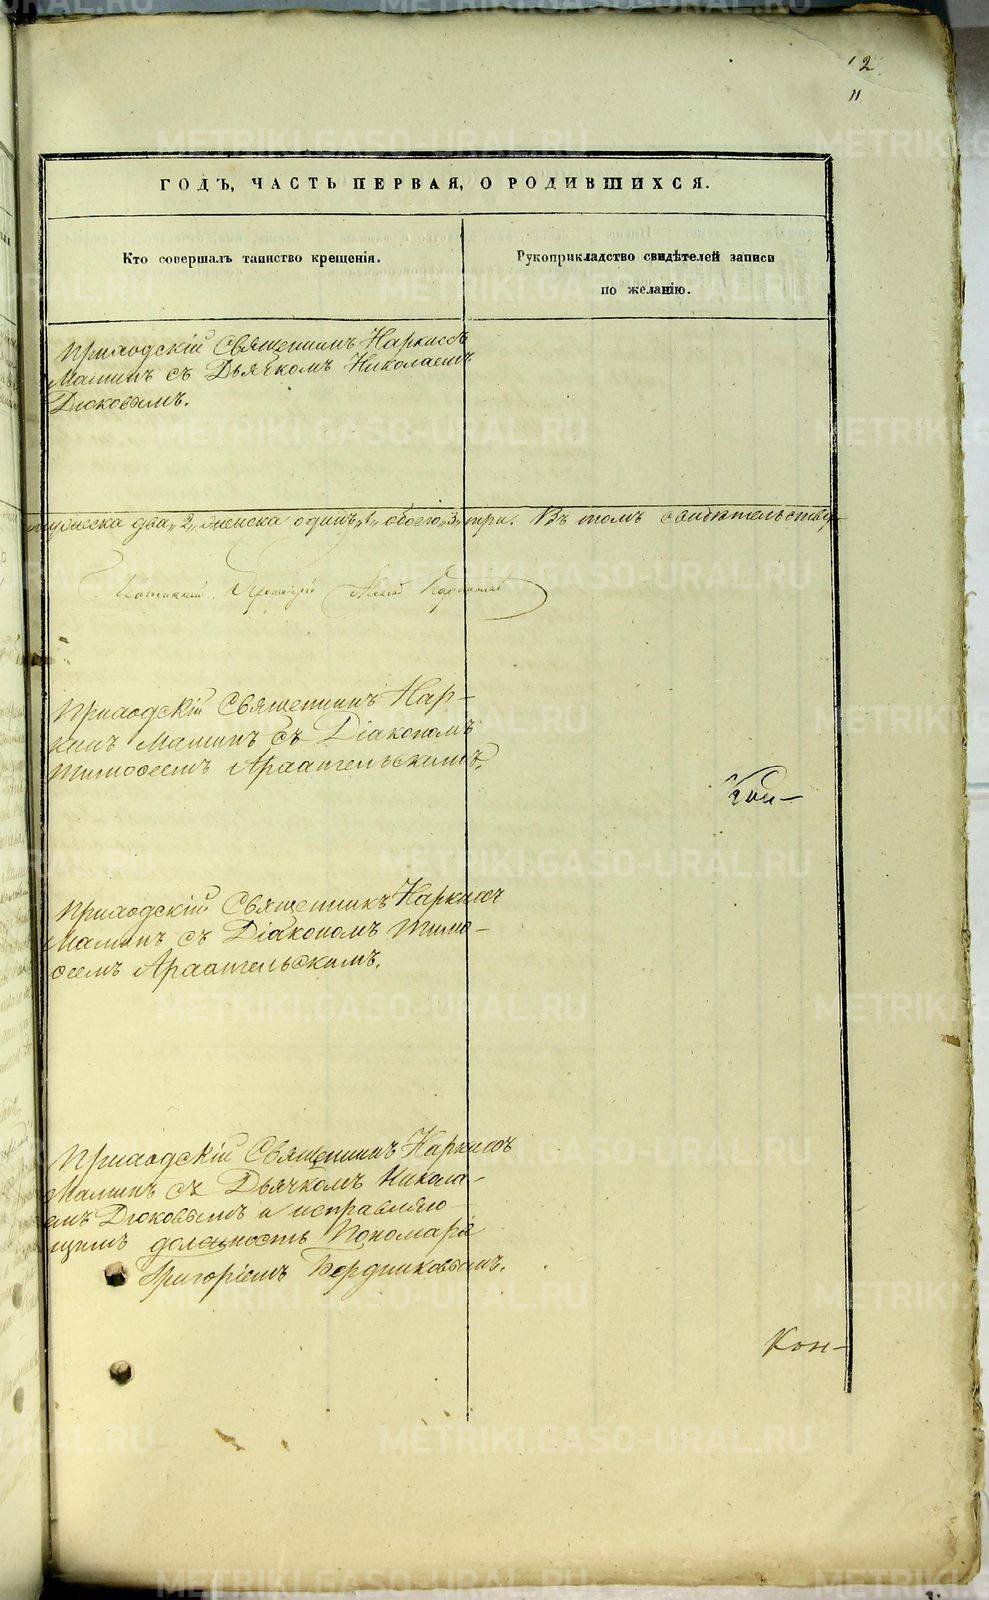 12
11
ГОДЪ, ЧАСТЬ ПЕРВАЯ, О РОДИВШИХСЯ.
Кто совершалъ таинство крещенія.
Рукоприкладство свидѣтелей записи
по желанію.
Приходскій Священникъ Наркиссъ
Маминъ съ Дьячкомъ Николаемъ
Дюковымъ.
мужеска два „2„ женска одинъ „1„ обоего „3„ три. Въ томъ свидѣтельству-
Приходскій Священникъ Нар-
кисъ Маминъ съ Діакономъ
Тимоѳеемъ Архангельскимъ.
Кон-
Приходскій Священникъ Наркиссъ
Маминъ съ Діакономъ Тимо-
ѳеемъ Архангельскимъ.
Приходскій Священникъ Наркиссъ
Маминъ съ Дьячкомъ Никола-
емъ Дюковымъ и исправляю
щимъ должность Пономаря
Григоріемъ Бердниковымъ.
Кон-
METRIKI.GASO-URAL.RU